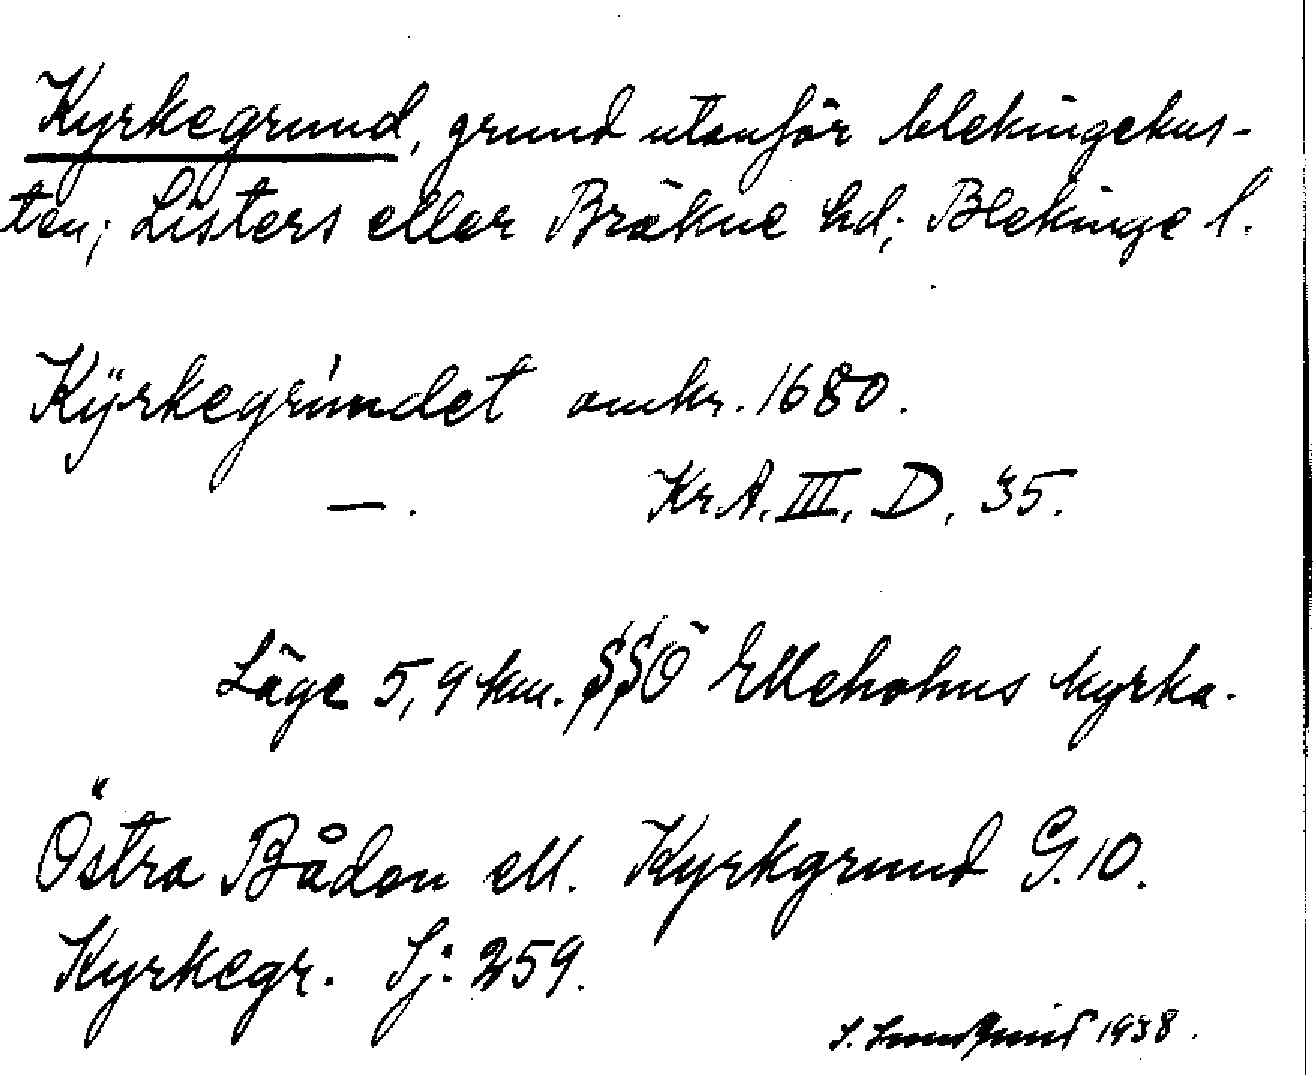 Kyrkegrund, grund utanför blekingekus-
ten; Listers eller Bräkne hd; Blekinge l.
Kÿrkegrúndet omkr. 1680.
— . Kr.A. III. D. 35.
Läge 5,9 km. SSÖ Elleholms kyrka.
Östra Båden ell. Kyrkgrund G. 10.
Kyrkegr. Sj: 259.
S. Lundquist 1938.